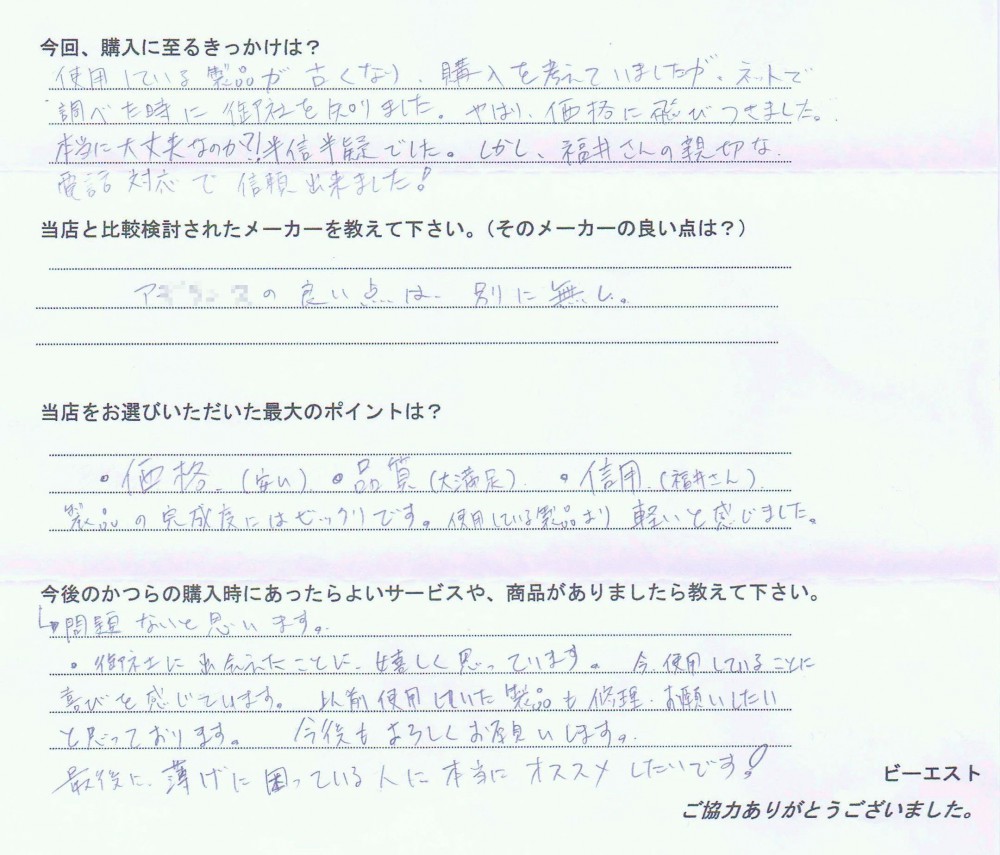 今回、購入に至るきっかけは？
使用している製品が古くなり、購入を考えていましたが、ネットで
調べた時に御社を知りました。やはり、価格に飛びつきました。
本当に大丈夫なのか?!半信半疑でした。しかし、福井さんの親切な
電話対応で信頼出来ました!
当店と比較検討されたメーカーを教えて下さい。（そのメーカーの良い点は？）
ア の良い点は、別に無し。
当店をお選びいただいた最大のポイントは？
・価格(安い) ・品質(大満足) ・信用(福井さん)
製品の完成度にはビックリです。使用している製品より軽いと感じました。
今後のかつらの購入時にあったらよいサービスや、商品がありましたら教えて下さい。
↳問題ないと思います。
・御社に出会えたことに、嬉しく思っています。今、使用していることに
喜びを感じています。以前使用していた製品も修理、お願いしたい
と思っております。今後もよろしくお願いします。
最後に、薄げに困っている人に本当にオススメしたいです!
ビーエスト
ご協力ありがとうございました。